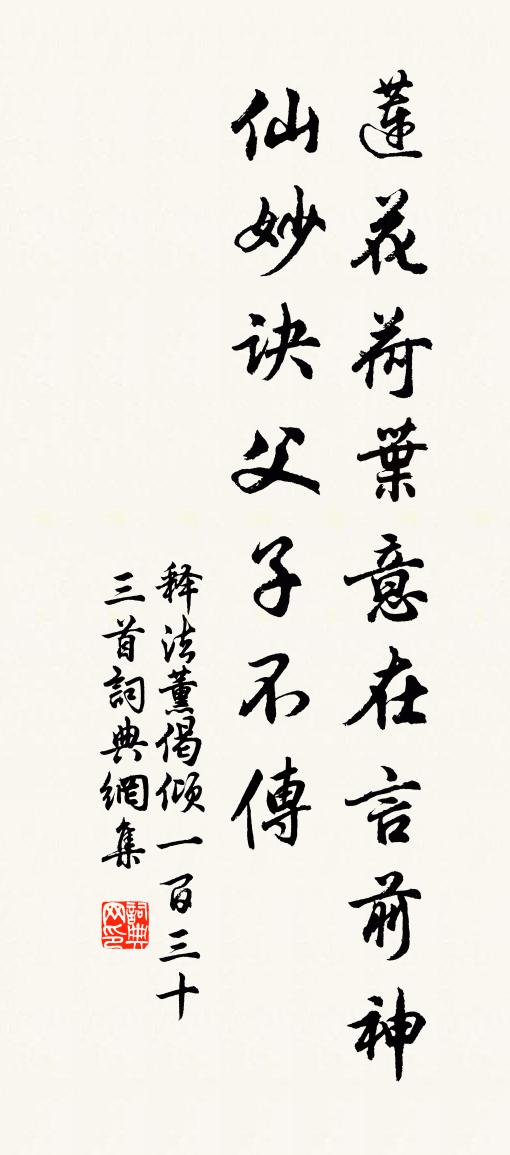 蓮花荷葉意在言前神
仙妙訣父子不傳
释法薰偈傾一百三十
三首詞典網集
詞典网印